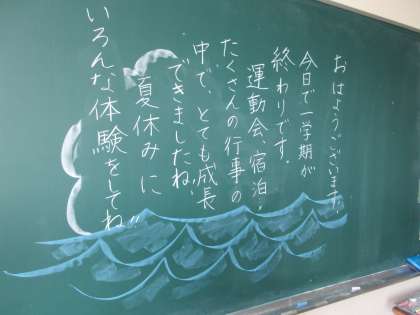 おはようございます。
今日で一学期が
終わりです。
運動会、宿泊、
たくさんの行事の
中で、とても成長
できましたね。
夏休みに
いろんな体験をしてね!!